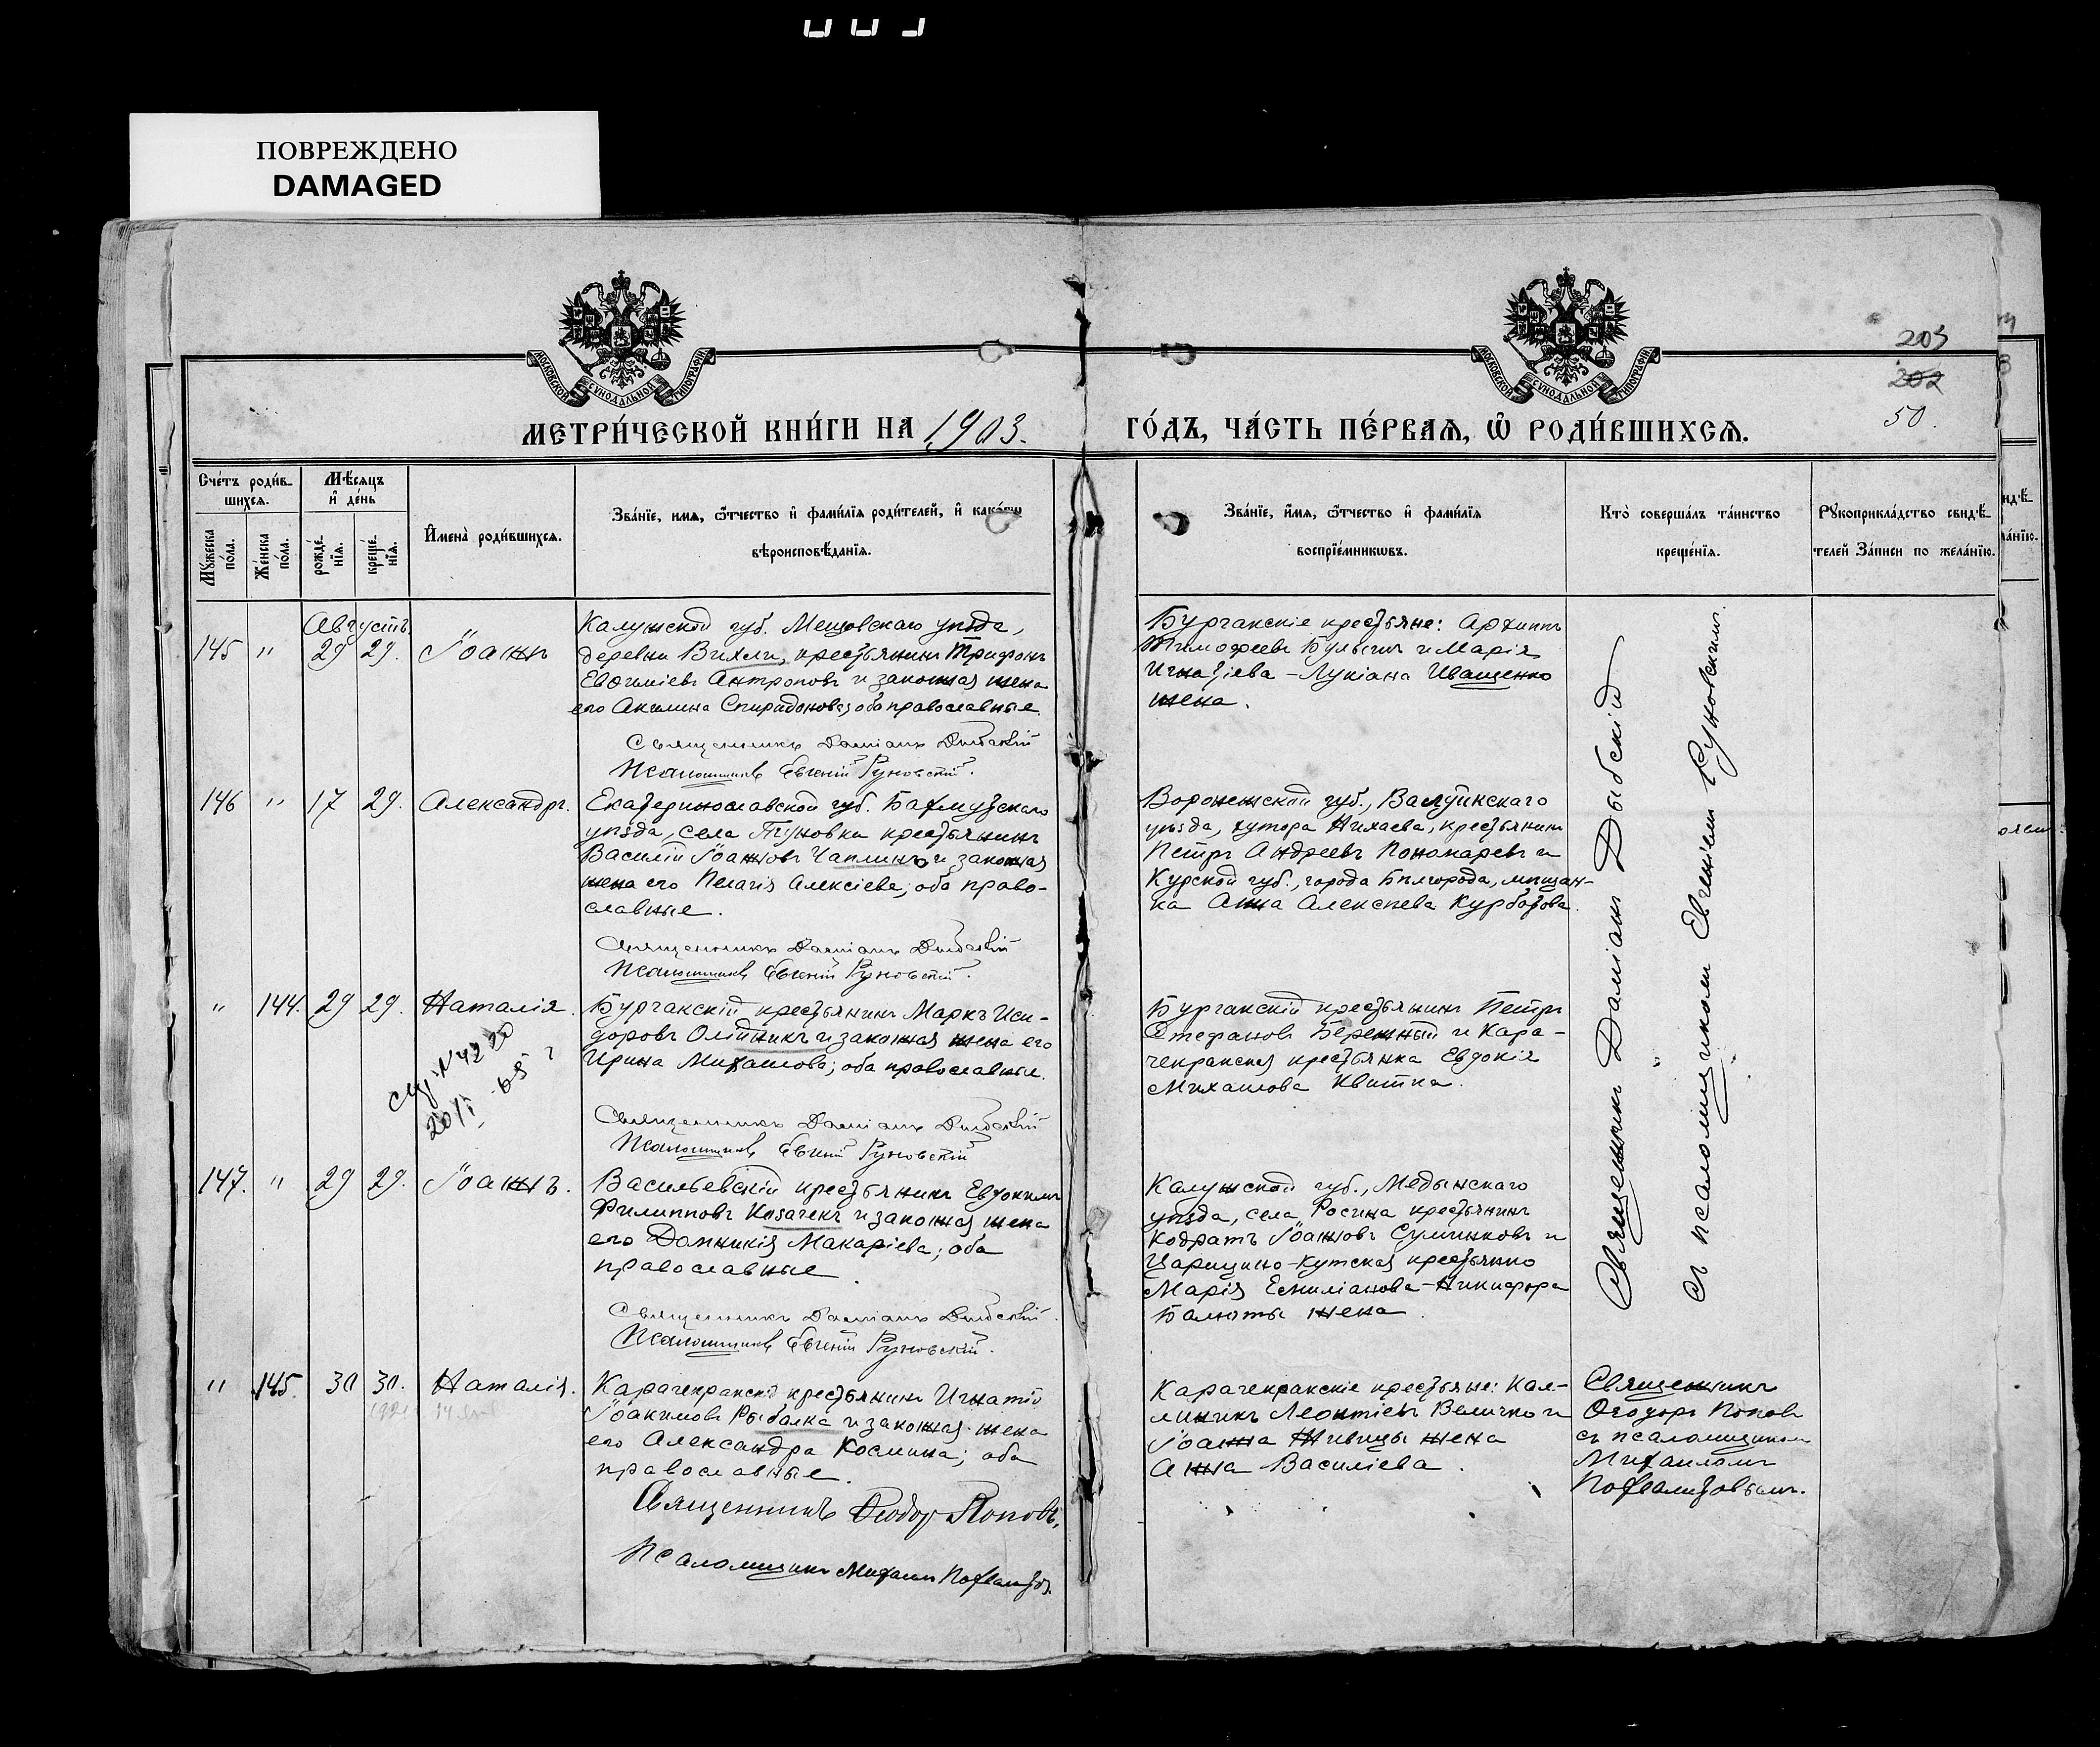 ПОВРЕЖДЕНО
DAMAGED
МОСКОВСКОЙ СѴНОДАЛЬНОЙ ТИПОГРАФІИ
МОСКОВСКОЙ СѴНОДАЛЬНОЙ ТИПОГРАФІИ
203
202
50.
МЕТРИ́ЧЕСКОЙ КНИ́ГИ НА 1903.
ГО́ДЪ, ЧА́СТЬ ПЕ́РВАЯ, Ѽ РОДИ́ВШИХСЯ.
Сче́тъ роди́в-
шихся.
Му́жеска
по́ла.
Же́нска
по́ла.
Мѣ́сяцъ
и҆ де́нь
рожде́-
нїя.
креще́-
нїя.
И҆мена̀ роди́вшихся.
Зва́нїе, имя, ѻ҆́тчество и҆ фами́лїя роди́телей, и҆ како́гѡ
вѣроисповѣ́данїя.
Зва́нїе, и҆́мя, ѻ҆́тчество и҆ фами́лїя
воспрїе́мникѡвъ.
Кто̀ соверша́лъ та́инство
креще́нїя.
Рꙋкоприкла́дство свидѣ́-
телей За́писи по жела́нїю.
Августъ.
145 " 29 29. Іоаннъ
Калужской губ. Мещовскаго уѣзда,
деревни Вихли, крестьянинъ Трифонъ
Евфиміевъ Антроповъ и законная жена
его Акилина Спиридонова; оба православные.
Священникъ Даміанъ Дыбскій
Псаломщикъ Евгеній Руновскій.
Бурчакскіе крестьяне: Архиппъ
Тимофеевъ Булыгинъ и Марія
Игнатіева - Лукіана Иващенко
жена.
146 " 17 29. Александръ.
Екатеринославской губ. Бахмутскаго
уѣзда, села крестьянинъ
Василій Іоанновъ Чаплинъ и законная
жена его Пелагія Алексіева; оба право-
славные.
Священникъ Даміанъ Дыбскій
Псаломщикъ Евгеній Руновскій.
Воронежской губ., Валуйкскаго
уѣзда, хутора крестьянинъ
Петръ Андреевъ Пономаревъ и
Курской губ., города Бѣлгорода, мѣщан-
ка Анна Алексѣева Курбатова.
" 144. 29 29. Наталія.
Бурчакскій крестьянинъ Маркъ Иси-
доровъ Олійникъ и законная жена его
Ирина Михаилова; оба православные.
Священникъ Даміанъ Дыбскій
Псаломщикъ Евгеній Руновскій
Бурчакскій крестьянинъ Петръ
Стефановъ Бережный и Кара-
чекракская крестьянка Евдокія
Михаилова Квитка.
147. " 29 29. Іоаннъ.
Васильевскій крестьянинъ Евдокимъ
Филипповъ Козачекъ и законная жена
его Домникія Макаріева; оба
православные.
Священникъ Даміанъ Дыбскій.
Псаломщикъ Евгеній Руновскій.
Калужской губ., Медынскаго
уѣзда, села Росина крестьянинъ
Кодратъ Іоанновъ Сулимковъ и
Царицыно-Кутская крестьянка
Марія Емиліанова - Никифора
Балюты жена.
Священникъ Даміанъ Дыбскій
съ псаломщикомъ Евгеніемъ Руновскимъ.
" 145. 30 30. Наталія.
Карачекракскій крестьянинъ Игнатій
Іоакимовъ Рыбалка и законная жена
его Александра Космина; оба
православные.
Священникъ Ѳеодоръ Поповъ.
Псаломщикъ Михаилъ
Карачекракскіе крестьяне: Кал-
линикъ Леонтіевъ Величко и
Іоанна Живицы жена
Анна Василіева.
Священникъ
Ѳеодоръ Поповъ
съ псаломщикомъ
Михаиломъ